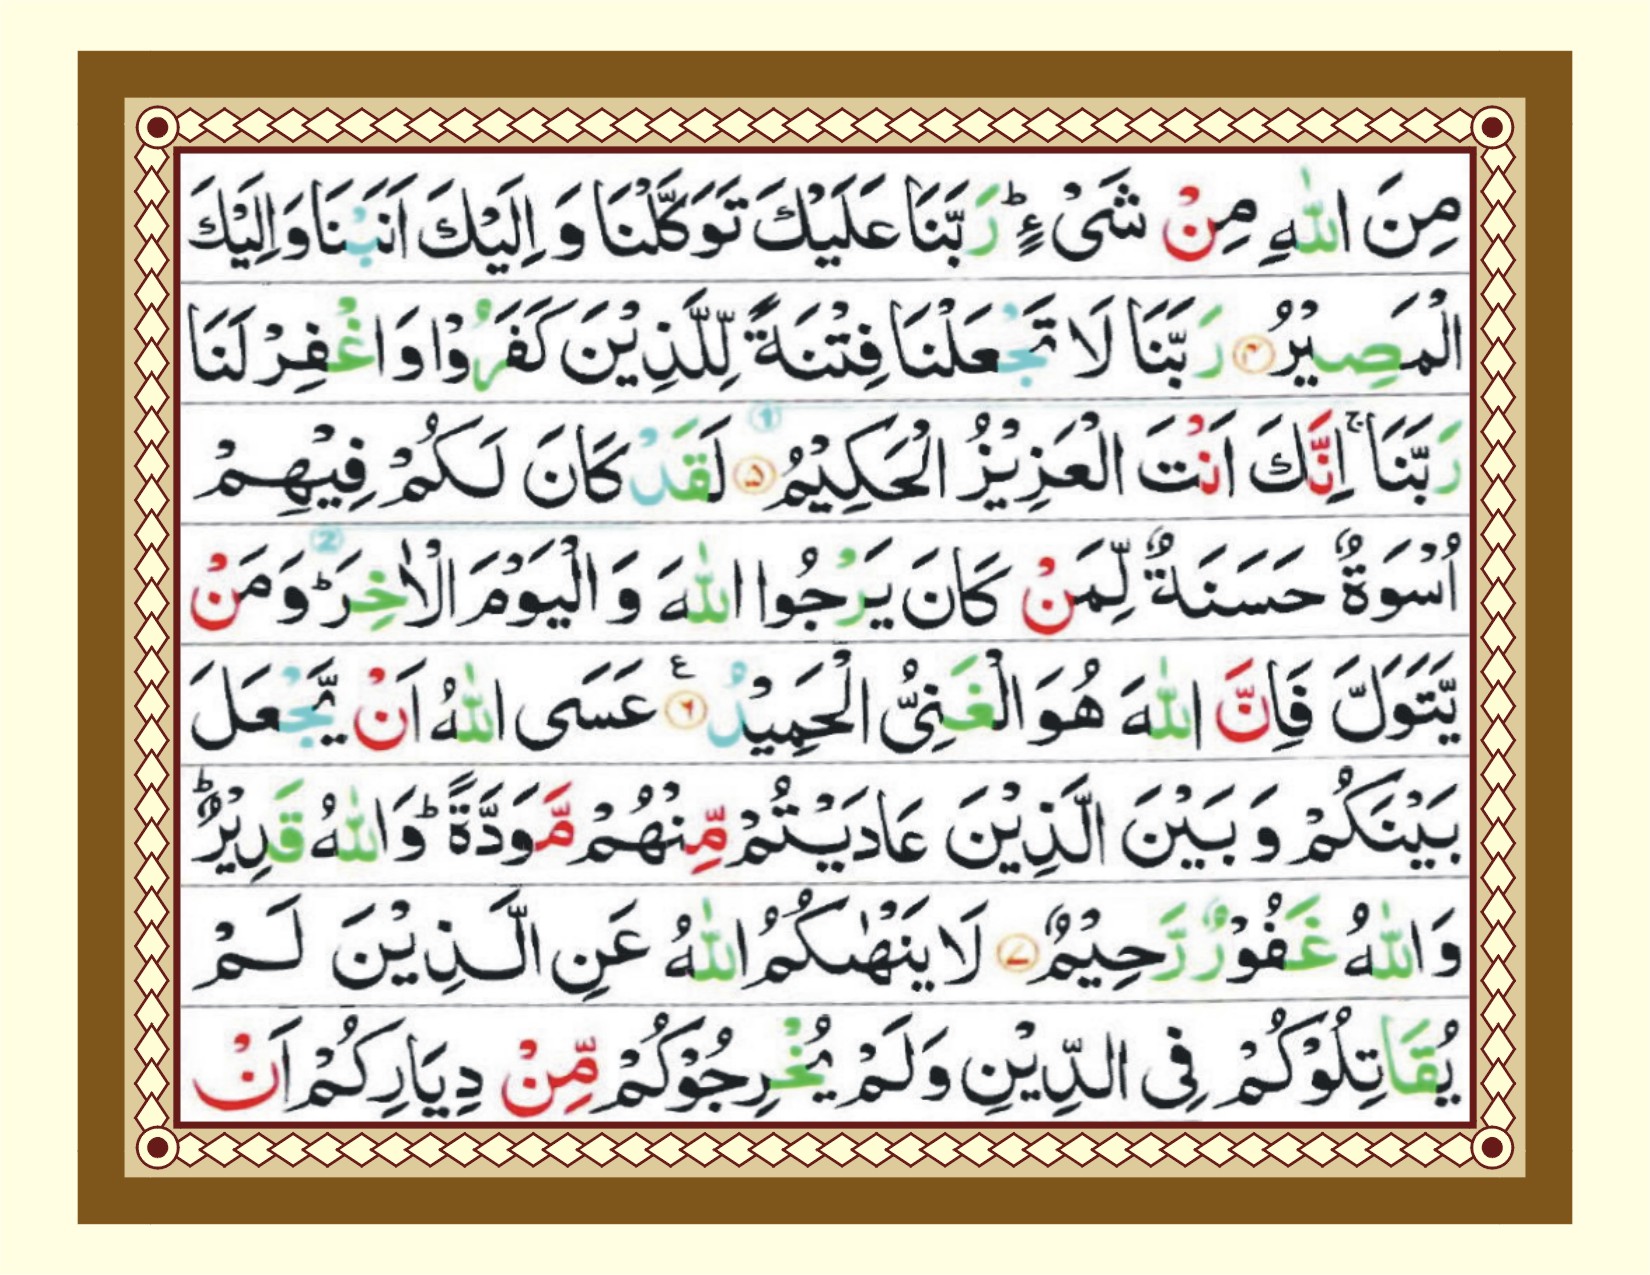 مِنَ اللّٰهِ مِنْ شَیْءٍ ؕ رَبَّنَا عَلَيْكَ تَوَكَّلْنَا وَ اِلَيْكَ اَنَبْنَا وَاِلَيْكَ
الْمَصِيْرُ ۴ رَبَّنَا لَا تَجْعَلْنَا فِتْنَةً لِّلَّذِيْنَ كَفَرُوْا وَاغْفِرْ لَنَا
رَبَّنَا ۚ اِنَّكَ اَنْتَ الْعَزِيْزُ الْحَكِيْمُ ۵ ① لَقَدْ كَانَ لَكُمْ فِيْهِمْ
اُسْوَةٌ حَسَنَةٌ لِّمَنْ كَانَ يَرْجُوا اللّٰهَ وَ الْيَوْمَ الْاٰخِرَ ؕ ② وَمَنْ
يَّتَوَلَّ فَاِنَّ اللّٰهَ هُوَ الْغَنِیُّ الْحَمِيْدُ ۶ ع عَسَى اللّٰهُ اَنْ يَّجْعَلَ
بَيْنَكُمْ وَ بَيْنَ الَّذِيْنَ عَادَيْتُمْ مِّنْهُمْ مَّوَدَّةً ؕ وَاللّٰهُ قَدِيْرٌ ؕ
وَاللّٰهُ غَفُوْرٌ رَّحِيْمٌ ۷ لَا يَنْهٰىكُمُ اللّٰهُ عَنِ الَّذِيْنَ لَمْ
يُقَاتِلُوْكُمْ فِی الدِّيْنِ وَلَمْ يُخْرِجُوْكُمْ مِّنْ دِيَارِكُمْ اَنْ